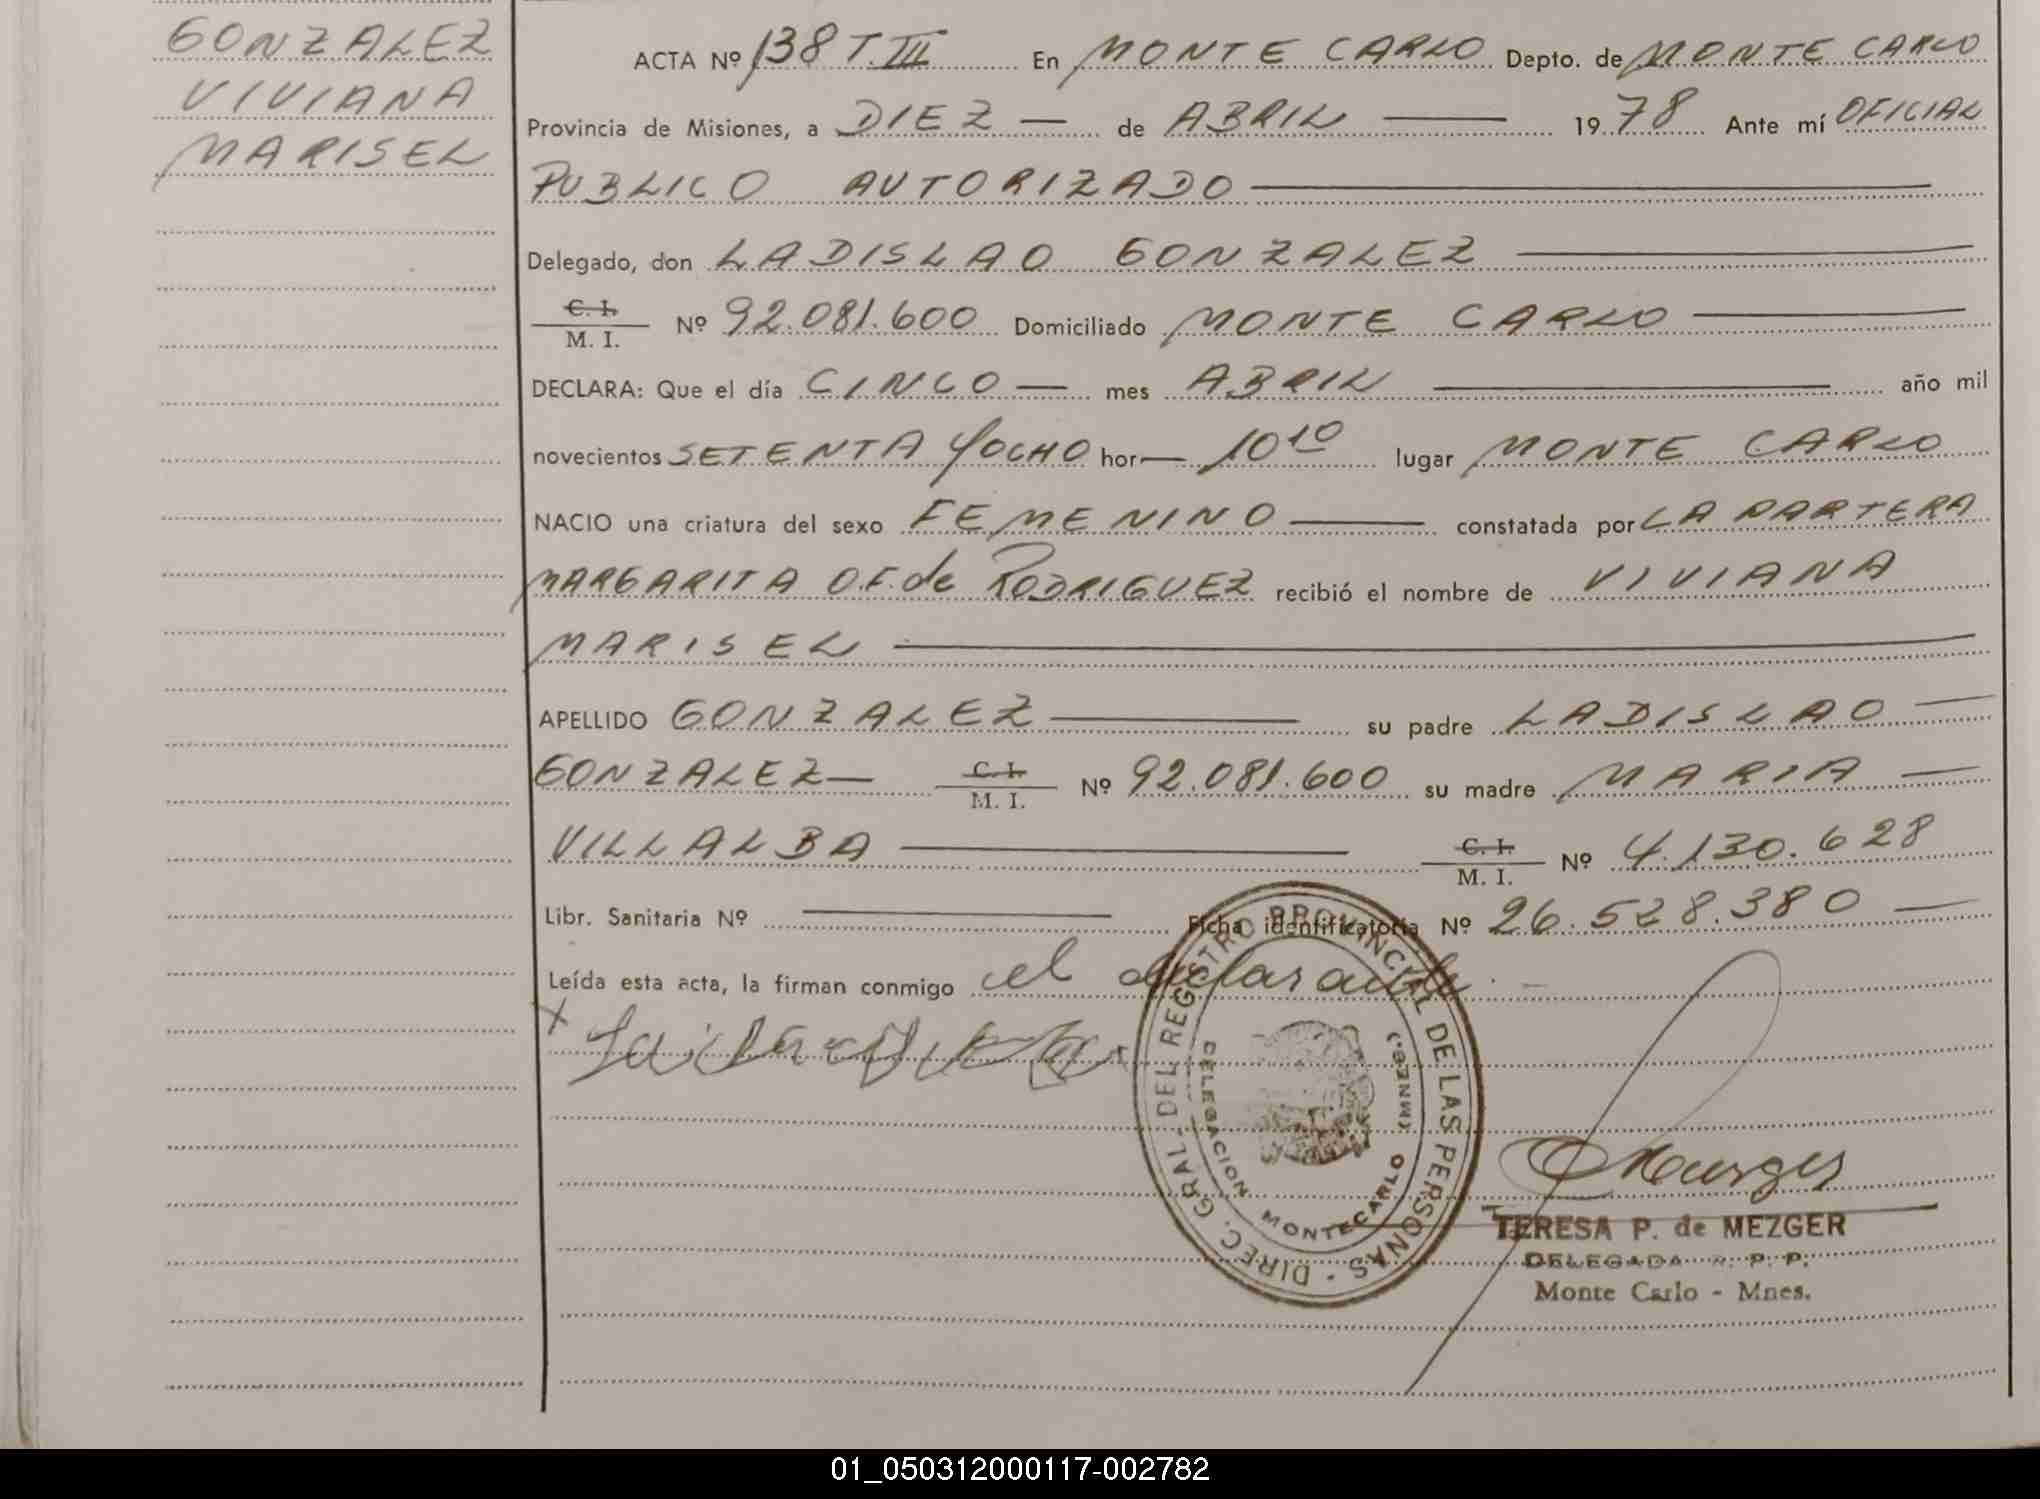 GONZALEZ
VIVIANA
MARISEL
ACTA Nº 138 T. III En MONTE CARLO Depto. de MONTE CARLO
Provincia de Misiones, a DIEZ — de ABRIL — 1978 Ante mí OFICIAL
PUBLICO AUTORIZADO —
Delegado, don LADISLAO GONZALEZ —
C. I.
M. I. Nº 92.081.600 Domiciliado MONTE CARLO —
DECLARA: Que el día CINCO — mes ABRIL — año mil
novecientos SETENTA Y OCHO hor— 10 10 lugar MONTE CARLO
NACIO una criatura del sexo FEMENINO — constatada por LA PARTERA
MARGARITA O.F. de RODRIGUEZ recibió el nombre de VIVIANA
MARISEL —
APELLIDO GONZALEZ — su padre LADISLAO —
GONZALEZ — C. I. M. I. Nº 92.081.600 su madre MARIA —
VILLALBA — C. I. M. I. Nº 4.130.628
Libr. Sanitaria Nº — Ficha identificatoria Nº 26.528.380 —
Leída esta acta, la firman conmigo el declarante. —
DIREC. GRAL. DEL REGISTRO PROVINCIAL DE LAS PERSONAS
DELEGACION MONTECARLO (MNES.)
TERESA P. de MEZGER
DELEGADA R. P. P.
Monte Carlo - Mnes.
01_050312000117-002782